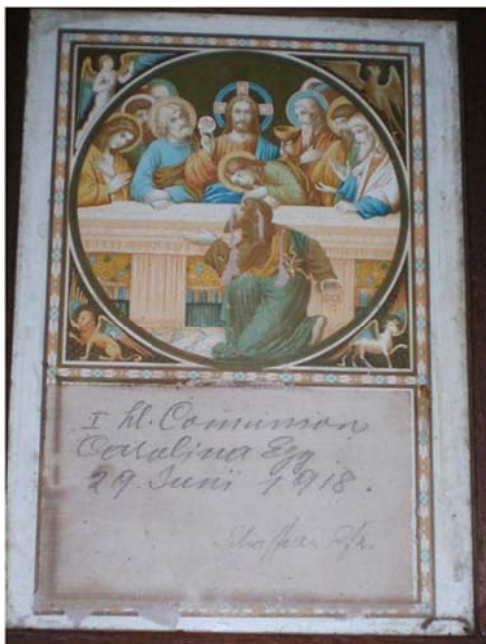 I hl. Comunion
Carolina Egg
29. Juni 1918.